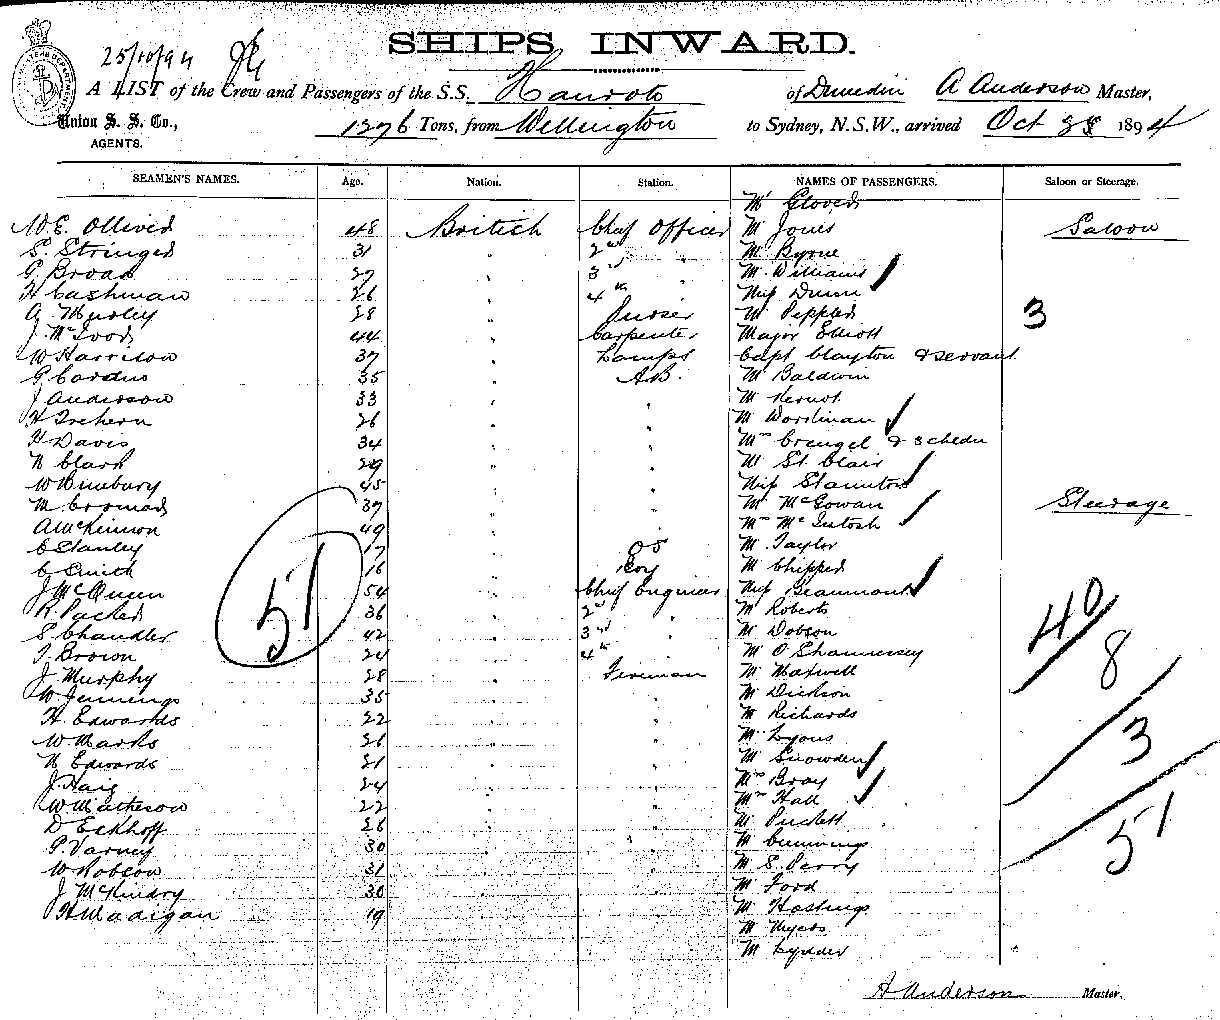 SHIPS INWARD.
25/10/94
A LIST of the Crew and Passengers of the S.S. Hauroto of Dunedin A Anderson Master,
Union S. S. Co., 1276 Tons, from Wellington to Sydney, N.S.W., arrived Oct 1894
AGENTS.
SEAMEN'S NAMES. Age. Nation. Station. NAMES OF PASSENGERS. Saloon or Steerage.
Mr Glover
W.E. Olliver 48 British Chief Officer Mr Jones Saloon
S. Stringer 31 " 2nd " Mr Byrne
G. Broad 27 " 3rd " Mr Williams
H Cashman 26 " 4th " Miss Dunn
A. Hurley 28 " Purser Mr Peppler 3
J. McLood 44 " Carpenter Major Elliott
W Harrison 37 " Lamps Capt Clayton & servant
P Cardno 35 " A.B. Mr Baldwin
J Anderson 33 " " Mr Kernot
H Trehern 26 " " Mr Wordman
H Davis 34 " " Mrs & 3 chldn
N Clark 29 " " Mr St. Clair
W Bunbury 45 " " Miss Staunton
M 37 " " Mr McGowan Steerage
A McKinnon 49 " " Mrs McIntosh
C Stanley 17 " O S Mr Taylor
C Smith 16 " Boy Mr Chipper
J McQueen 54 " Chief Engineer Miss Beaumont
R. Packer 36 " 2nd " Mr Roberts
S. Chandler 42 " 3rd " Mr Dobson
T. Brown 24 " 4th " Mr O'Shannessy
J. Murphy 28 " Fireman Mr Maxwell
W. Jennings 35 " " Mr Dickson
H. Edwards 22 " " Mr Richards
W. Marks 21 " " Mr Lyons
N Edwards 21 " " Mr Snowden
J. Haig 24 " " Mrs Bray
W Matheson 22 " " Mrs Hall
D Eckhoff 26 " " Mr Puckett
P. Varney 30 " " Mr Cumming
W Robson 31 " " Mr S. Perry
J McKindry 30 " " Mr Ford
H Madigan 19 " " Mr Hastings
Mr Myers
Mr Lydder
51
40
8
3
51
A Anderson Master.